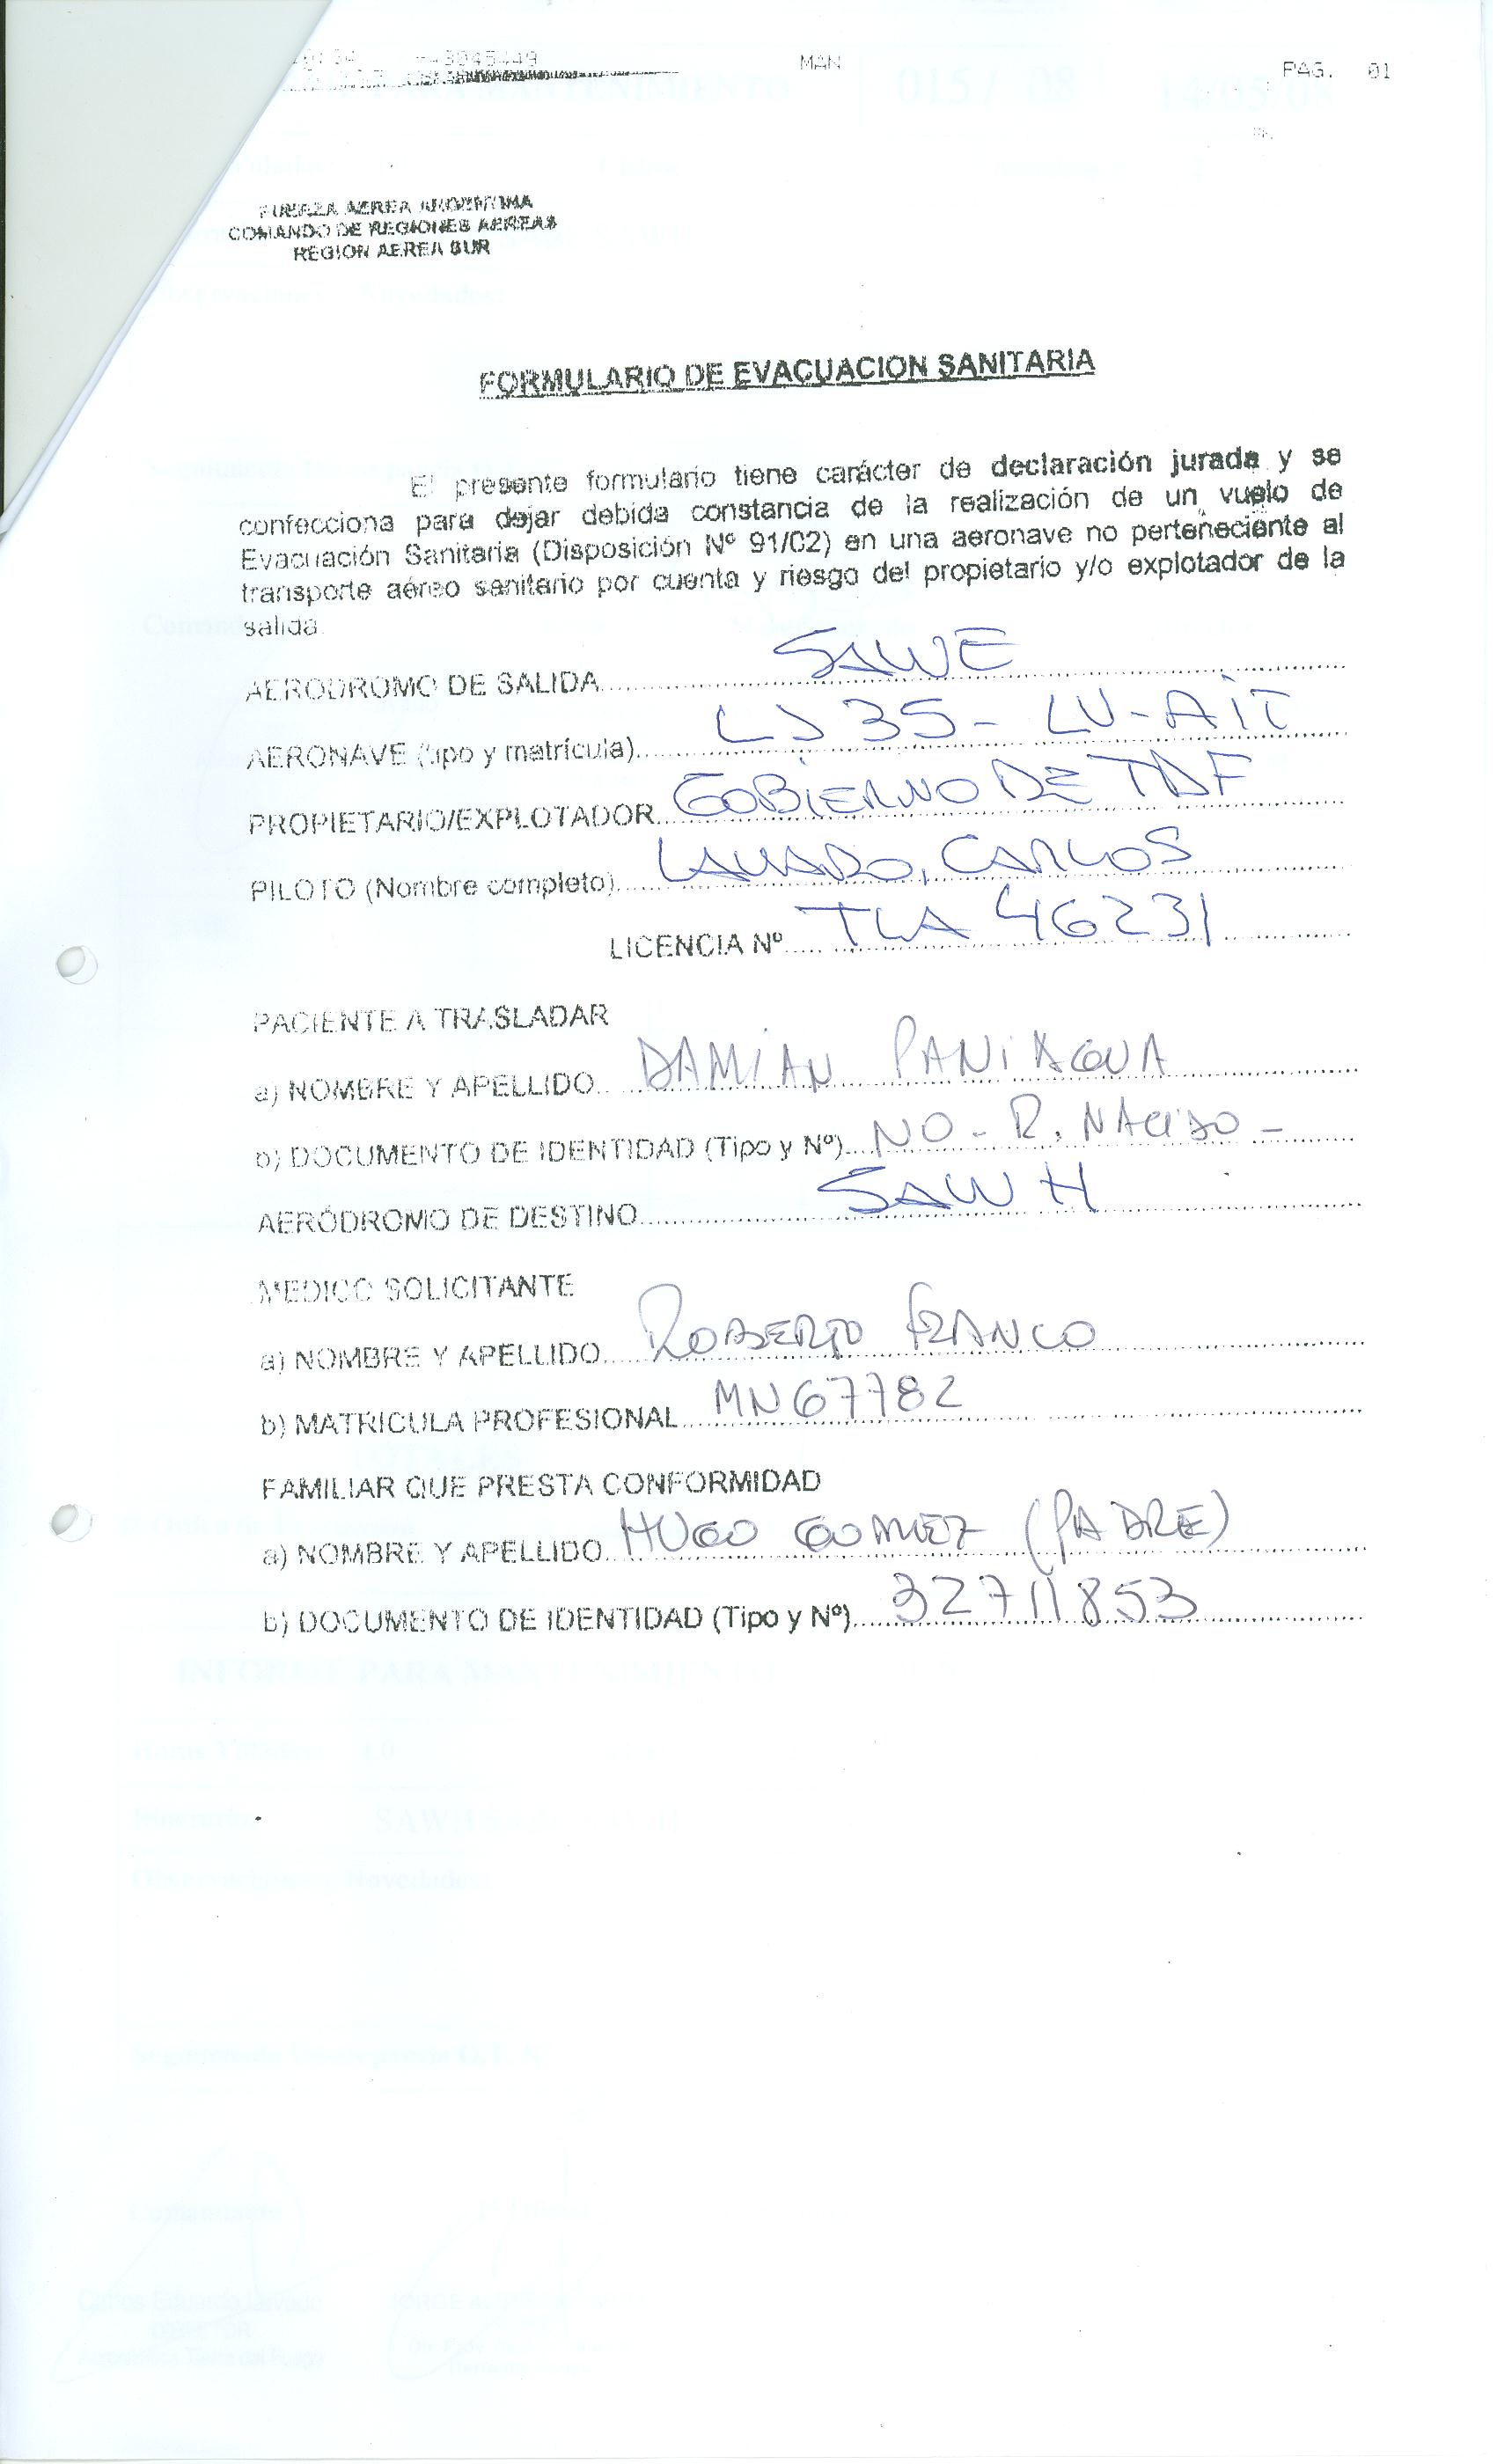 3045449 MAN PAG. 01
FUERZA AEREA ARGENTINA
COMANDO DE REGIONES AEREAS
REGION AEREA SUR
FORMULARIO DE EVACUACION SANITARIA
El presente formulario tiene carácter de declaración jurada y se
confecciona para dejar debida constancia de la realización de un vuelo de
Evacuación Sanitaria (Disposición Nº 91/02) en una aeronave no perteneciente al
transporte aéreo sanitario por cuenta y riesgo del propietario y/o explotador de la
salida.
AERODROMO DE SALIDA SAWE
AERONAVE (tipo y matrícula) LJ 35 - LV-AIT
PROPIETARIO/EXPLOTADOR GOBIERNO DE TDF
PILOTO (Nombre completo) LAVADO, CARLOS
LICENCIA Nº TLA 46231
PACIENTE A TRASLADAR
a) NOMBRE Y APELLIDO DAMIAN PANIAGUA
b) DOCUMENTO DE IDENTIDAD (Tipo y Nº) NO - R. NACIDO -
AERÓDROMO DE DESTINO SAWH
MEDICO SOLICITANTE
a) NOMBRE Y APELLIDO ROBERTO FRANCO
b) MATRICULA PROFESIONAL MN 67782
FAMILIAR QUE PRESTA CONFORMIDAD
a) NOMBRE Y APELLIDO HUGO GOMEZ (PADRE)
b) DOCUMENTO DE IDENTIDAD (Tipo y Nº) 32711853